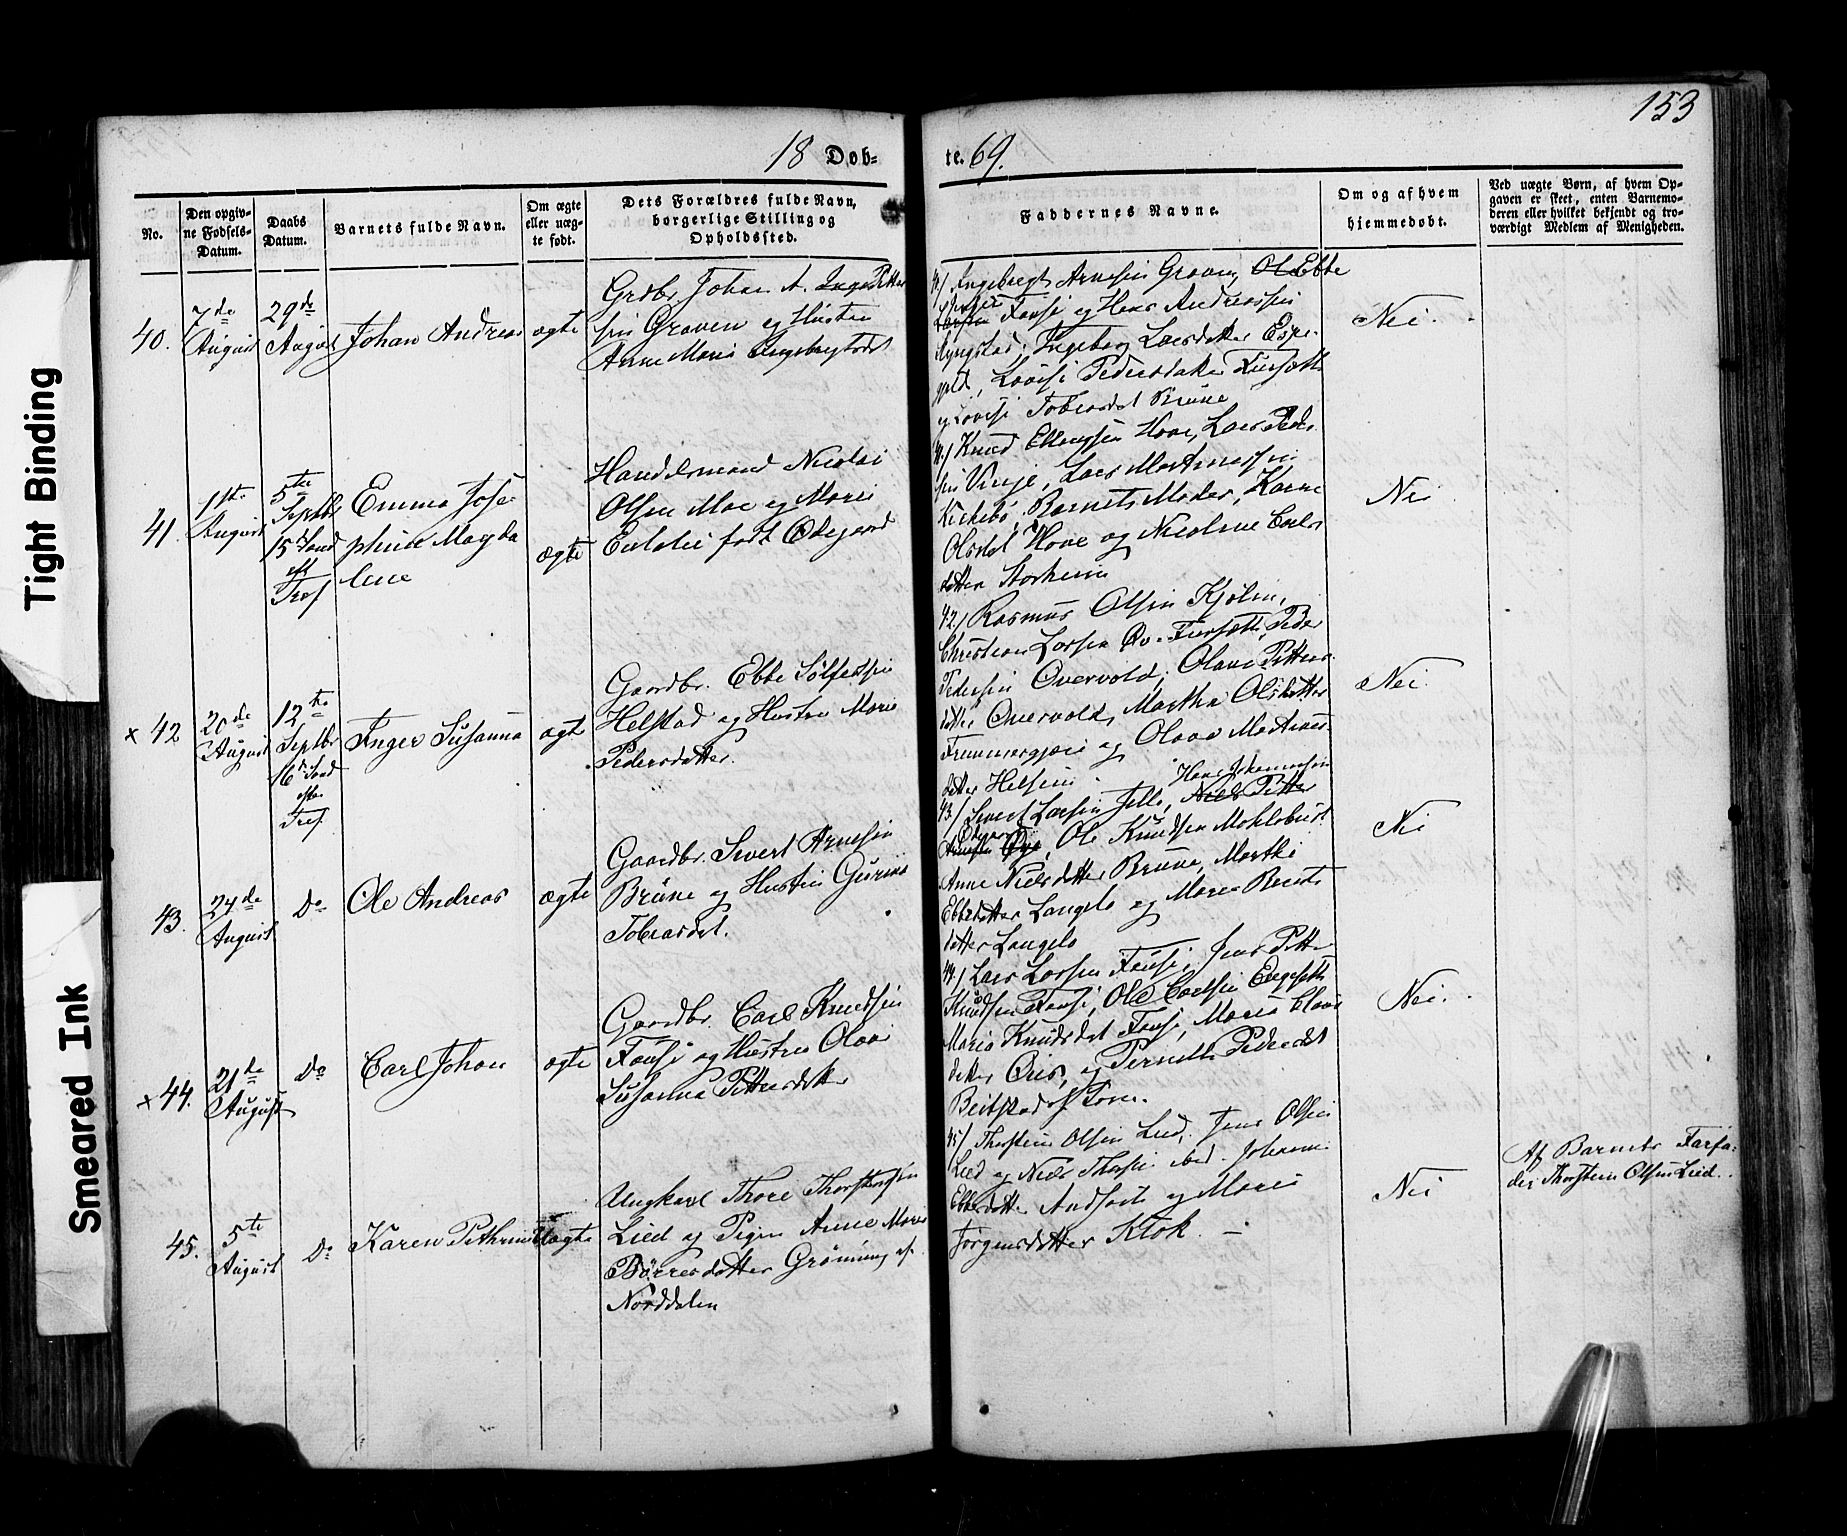 153
18 Dob-
te. 69.
No.
Den opgiv-
ne Fødsels-
Datum.
Daabs
Datum.
Barnets fulde Navn.
Om ægte
eller uæg-
te født.
Dets Forældres fulde Navn,
borgerlige Stilling og
Opholdssted.
Faddernes Navne.
Om og af hvem
hjemmedøbt.
Ved uægte Børn, af hvem Op-
gaven er skeet, enten Barnemo-
deren eller hvilket bekjendt og tro-
værdigt Medlem af Menigheden.
40.
7de
August
29de
August
Johan Andreas
ægte
Grdbr. Johan A. Petter
sen Graven og Hustru
Anne Marie Engebregtsdt
40/ Ingebregt Arnesen Graven, Ebbe
Larsen Fausе og Hans Andreassen
Ryngstad, Ingeborg Larsdatter Espe
gjeld, Lovise Pedersdatter
og Lovise Tobiasdt Brune
Nei.
41.
1ste
August
5te
Septbr
15 Sond
eft
Tref
Emma Jose
phine Magda
lene
ægte
Handelsmand Nicolai
Olsen Moe og Marie
Eulalie født Ødegaard
41/ Knud Ellingsen Hove, Lars Peder
sen Vinje, Lars Martinussen
Kirkebø, Barnets Moder, Karen
Olsdt Hove og Nicoline Carls
datter Storheim
Nei
x 42
20de
August
12te
Septbr
16 Sond
efter
Tref
Inger Susanna
ægte
Gaardbr. Ebbe Sølfestsen
Helstad og Hustru Marie
Pedersdatter.
42/ Rasmus Olsen Kjølen,
Christian Larsen Øv. Fursæth, Peder
Pedersen Overvold, Olave Petters
datter Overvold, Martha Olsdatter
Fremmergjære og Olave Martinus
datter Helsem
Nei.
43.
24de
August
Do
Ole Andreas
ægte
Gaardbr. Sivert Arnesen
Brune og Hustru Gurine
Tobiasdt.
Hans Johannessen
43/ Sivert Larsen Felle, Niels Petter
Ødegaard
Arnesen, Ole Knudsen Mehlebust
Anne Nielsdatter Brune, Marthe
Ebbedatter Langelo og Maren Bernts
datter Langelo
Nei
x 44.
21de
August
Do
Carl Johan
ægte
Gaardbr. Carl Knudsen
Fause og Hustru Olave
Susanna Pettersdatter
44/ Lars Larsen Fause, Jens Petter
Knudsen Fause, Ole Carlsen Engesæth
Maria Knudsdt Fause, Maria Claus
datter Øvis, og Pernille Pedersdt
Beitstad
Nei.
45.
5te
August
Do
Karen Pethrine
Uægte
Ungkarl Thore Thorsteinsen
Lied og Pigen Anne Marie
Børresdatter Grønning af
Norddalen
45/ Thorstein Olsen Lied, Jens Olsen
Lied og Niels Thorsen ibid. Johanne
Ebbedatter og Marie
Jørgensdatter Klok. —
Nei
Af Barnets Farfa-
der Thorstein Olsen Lied.
Tight Binding
Smeared Ink